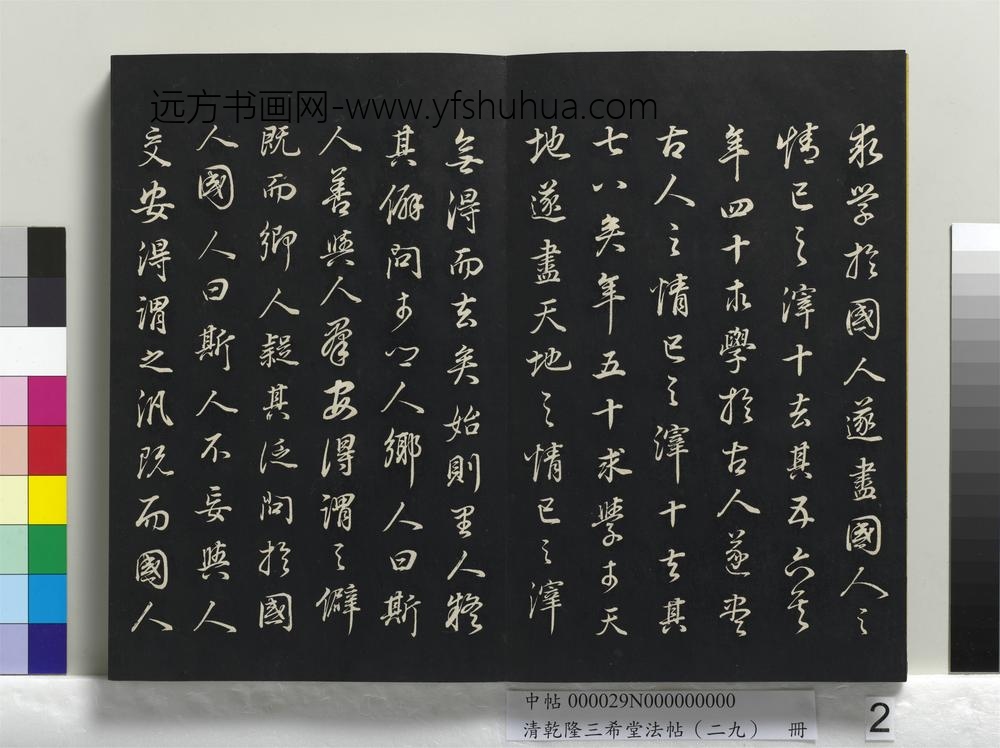 远方书画网-www.yfshuhua.com
求学於國人遂盡國人之
情已之滓十去其五六矣
年四十求學於古人遂盡
古人之情已之滓十去其
七八矣年五十求學於天
地遂盡天地之情已之滓
無得而去矣始則里人疑
其僻問於鄉人鄉人曰斯
人善與人羣安得謂之僻
既而鄉人疑其泛問於國
人國人曰斯人不妄與人
交安得謂之汎既而國人
中帖 000029N000000000
清乾隆三希堂法帖（二九） 冊
2